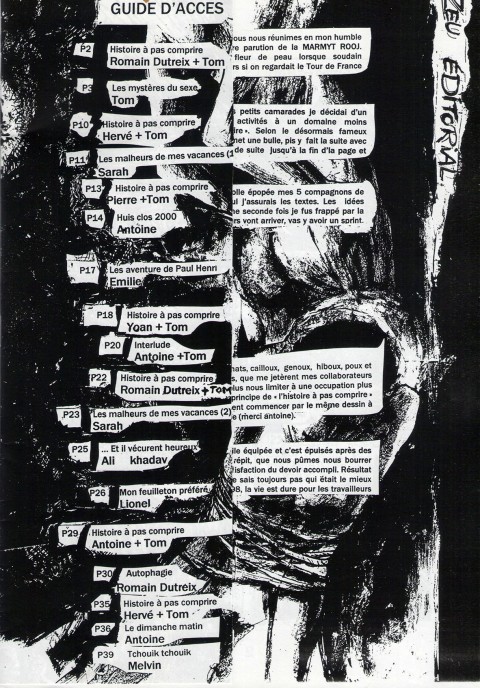 GUIDE D'ACCES
P2
Histoire à pas comprire
Romain Dutreix + Tom
P3
Les mystères du sexe
Tom
P10
Histoire à pas comprire
Hervé + Tom
P11
Les malheurs de mes vacances (1
Sarah
P13
Histoire à pas comprire
Pierre +Tom
P14
Huis clos 2000
Antoine
P17
Les aventure de Paul Henri
Emilie
P18
Histoire à pas comprire
Yoan + Tom
P20
Interlude
Antoine +Tom
P22
Histoire à pas comprire
Romain Dutreix + Tom
P23
Les malheurs de mes vacances (2)
Sarah
P25
... Et il vécurent heureux
Ali khadav
P26
Mon feuilleton préféré
Lionel
P29
Histoire à pas comprire
Antoine + Tom
P30
Autophagie
Romain Dutreix
P35
Histoire à pas comprire
Hervé + Tom
P36
Le dimanche matin
Antoine
P39
Tchouik tchouik
Melvin
ZEU EDITORIAL
ous nous réunimes en mon humble
re parution de la MARMYT ROOJ.
fleur de peau lorsque soudain
rs si on regardait le Tour de France
s petits camarades je décidai d'un
activités à un domaine moins
ire ». Selon le désormais fameux
net une bulle, pis y fait la suite avec
de suite jusqu'à la fin d'la page et
olle épopée mes 5 compagnons de
ul j'assurais les textes. Les idées
ne seconde fois je fus frappé par la
rs vont arriver, vas y avoir un sprint.
hats, cailloux, genoux, hiboux, poux et
s, que me jetèrent mes collaborateurs
lus nous limiter à une occupation plus
principe de « l'histoire à pas comprire »
ent commencer par le même dessin à
e (merci antoine).
ile équipée et c'est épuisés après des
répit, que nous pûmes nous bourrer
isfaction du devoir accompli. Résultat
e sais toujours pas qui était le mieux
98, la vie est dure pour les travailleurs